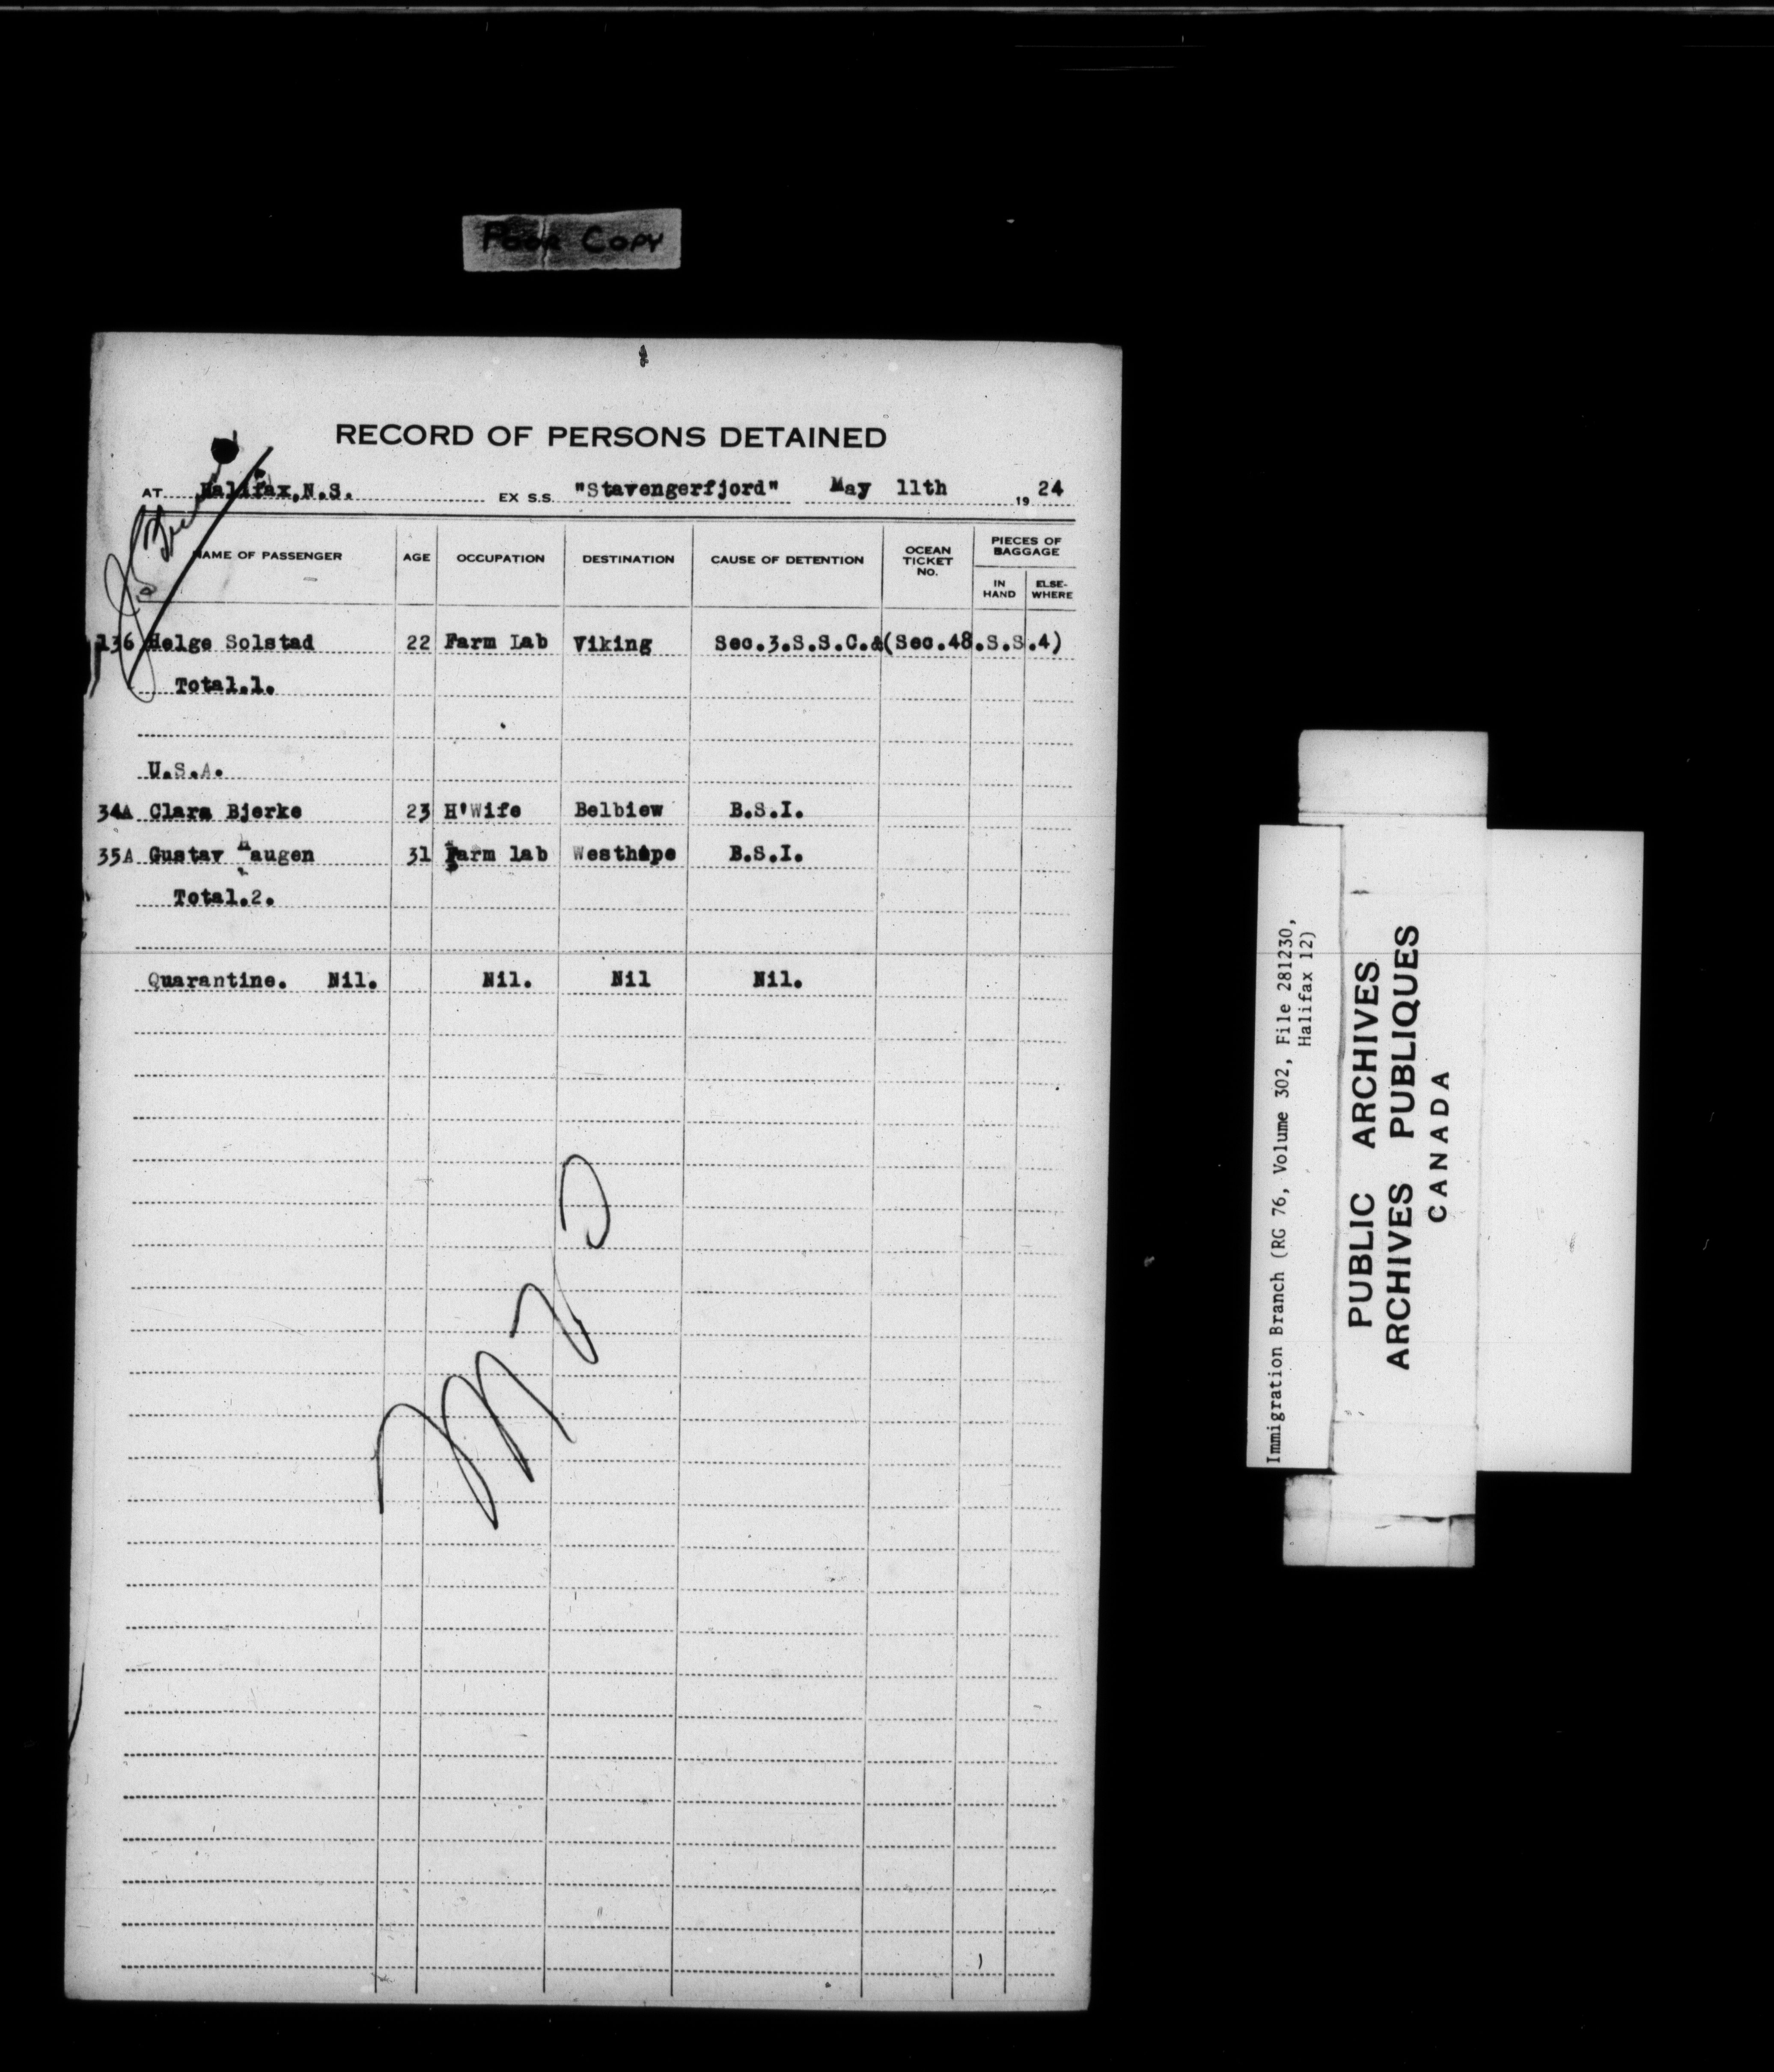 Poor Copy
RECORD OF PERSONS DETAINED
AT Halifax,N.S. EX S.S. "Stavengerfjord" May 11th 19 24
NAME OF PASSENGER AGE OCCUPATION DESTINATION CAUSE OF DETENTION OCEAN TICKET NO. PIECES OF BAGGAGE
IN HAND ELSE-WHERE
136 Helge Solstad 22 Farm Lab Viking Sec.3.S.S.C.&(Sec.48.S.S.4)
Total.1.
U.S.A.
34A Clara Bjerke 23 H'Wife Belbiew B.S.I.
35A Gustav Haugen 31 Farm lab Westhope B.S.I.
Total.2.
Quarantine. Nil. Nil. Nil Nil.
Immigration Branch (RG 76, Volume 302, File 281230,
Halifax 12)
PUBLIC ARCHIVES
ARCHIVES PUBLIQUES
CANADA